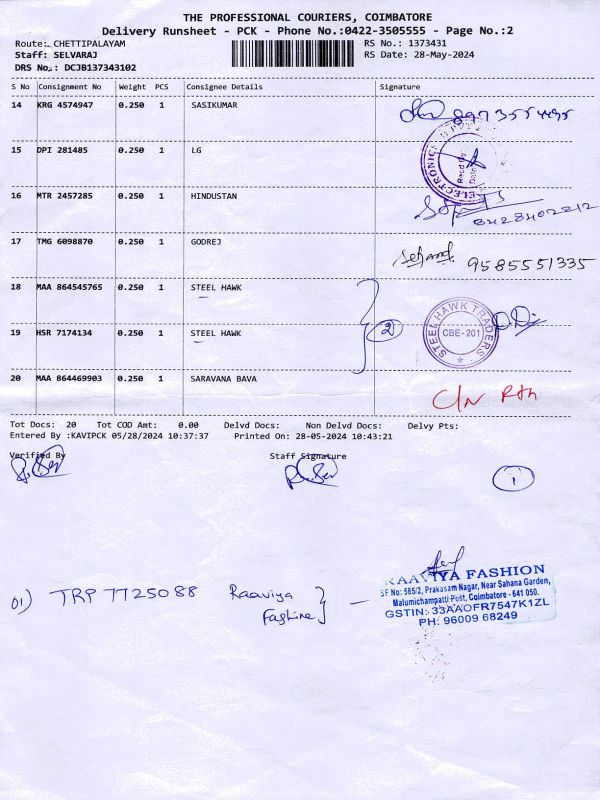 THE PROFESSIONAL COURIERS, COIMBATORE
Delivery Runsheet - PCK - Phone No.:0422-3505555 - Page No.:2
Route: CHETTIPALAYAM RS No.: 1373431
Staff: SELVARAJ RS Date: 28-May-2024
DRS No.: DCJB137343102
S No Consignment No Weight PCS Consignee Details Signature
14 KRG 4574947 0.250 1 SASIKUMAR
15 DPI 281485 0.250 1 LG
ELECTRONICS
Recd By
Date
16 MTR 2457285 0.250 1 HINDUSTAN
17 TMG 6098870 0.250 1 GODREJ
9585551335
18 MAA 864545765 0.250 1 STEEL HAWK
STEEL HAWK TRADERS
CBE-201
2
19 HSR 7174134 0.250 1 STEEL HAWK
20 MAA 864469903 0.250 1 SARAVANA BAVA
C/N Rtn
Tot Docs: 20 Tot COD Amt: 0.00 Delvd Docs: Non Delvd Docs: Delvy Pts:
Entered By :KAVIPCK 05/28/2024 10:37:37 Printed On: 28-05-2024 10:43:21
Verified By Staff Signature
1
01) TRP 7725088 Raaviya
Fashine
RAAVIYA FASHION
SF No: 585/2, Prakasam Nagar, Near Sahana Garden,
Malumichampatti Post, Coimbatore - 641 050.
GSTIN: 33AAOFR7547K1ZL
PH: 96009 68249